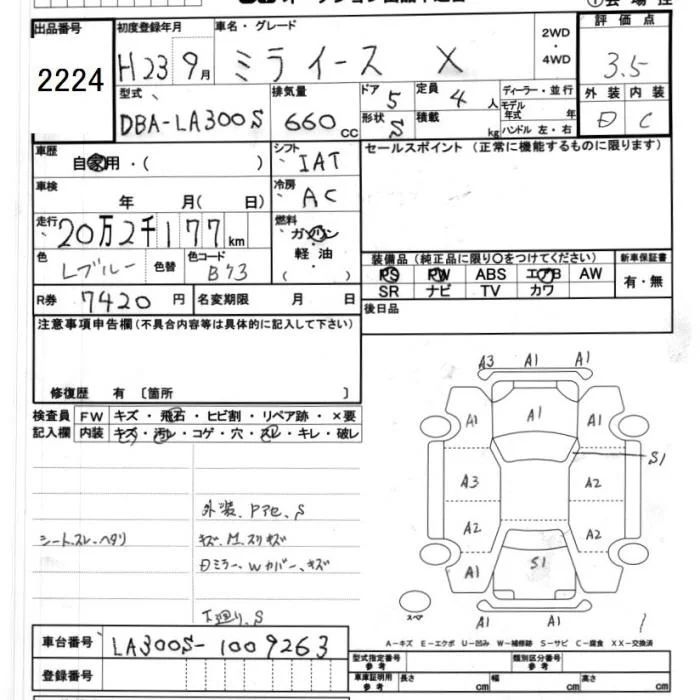 出品番号 2224
初度登録年月 H23 9月
車名・グレード ミライース X
2WD・4WD
評価点 3.5
外装 D 内装 C
型式 DBA-LA300S
排気量 660 cc
ドア 5
形状 S
定員 4 人
積載 kg
ディーラー・並行
モデル年式 年
ハンドル 左・右
車歴 自家用・( )
シフト IAT
セールスポイント (正常に機能するものに限ります)
車検 年 月( 日)
冷房 AC
走行 20万2千177 km
燃料 ガソリン 軽油 ( )
色 Lブルー 色替 色コード B73
装備品 (純正品に限り○をつけてください)
PS PW ABS エアB AW
SR ナビ TV カワ
新車保証書 有・無
R券 7420 円 名変期限 月 日
後日品
注意事項申告欄 (不具合内容等は具体的に記入して下さい)
修復歴 有 〔箇所 〕
検査員記入欄
FW キズ・飛石・ヒビ割・リペア跡・×要
内装 キズ・汚レ・コゲ・穴・スレ・キレ・破レ
A3 A1 A1
A1 A1 A1
S1
A3 A2
A2 A2
A1 S1 A1
A1 A1
スペア
外装、Pアセ、S
シートスレ、ヘタリ
キズ、M、スリキズ
Dミラー、Wカバー、キズ
下廻り、S
A-キズ E-エクボ U-凹み W-補修跡 S-サビ C-腐食 XX-交換済
車台番号 LA300S-1009263
登録番号
型式指定番号 参考 類別区分番号 参考
車庫証明用 参考 長さ cm 幅 cm 高さ cm